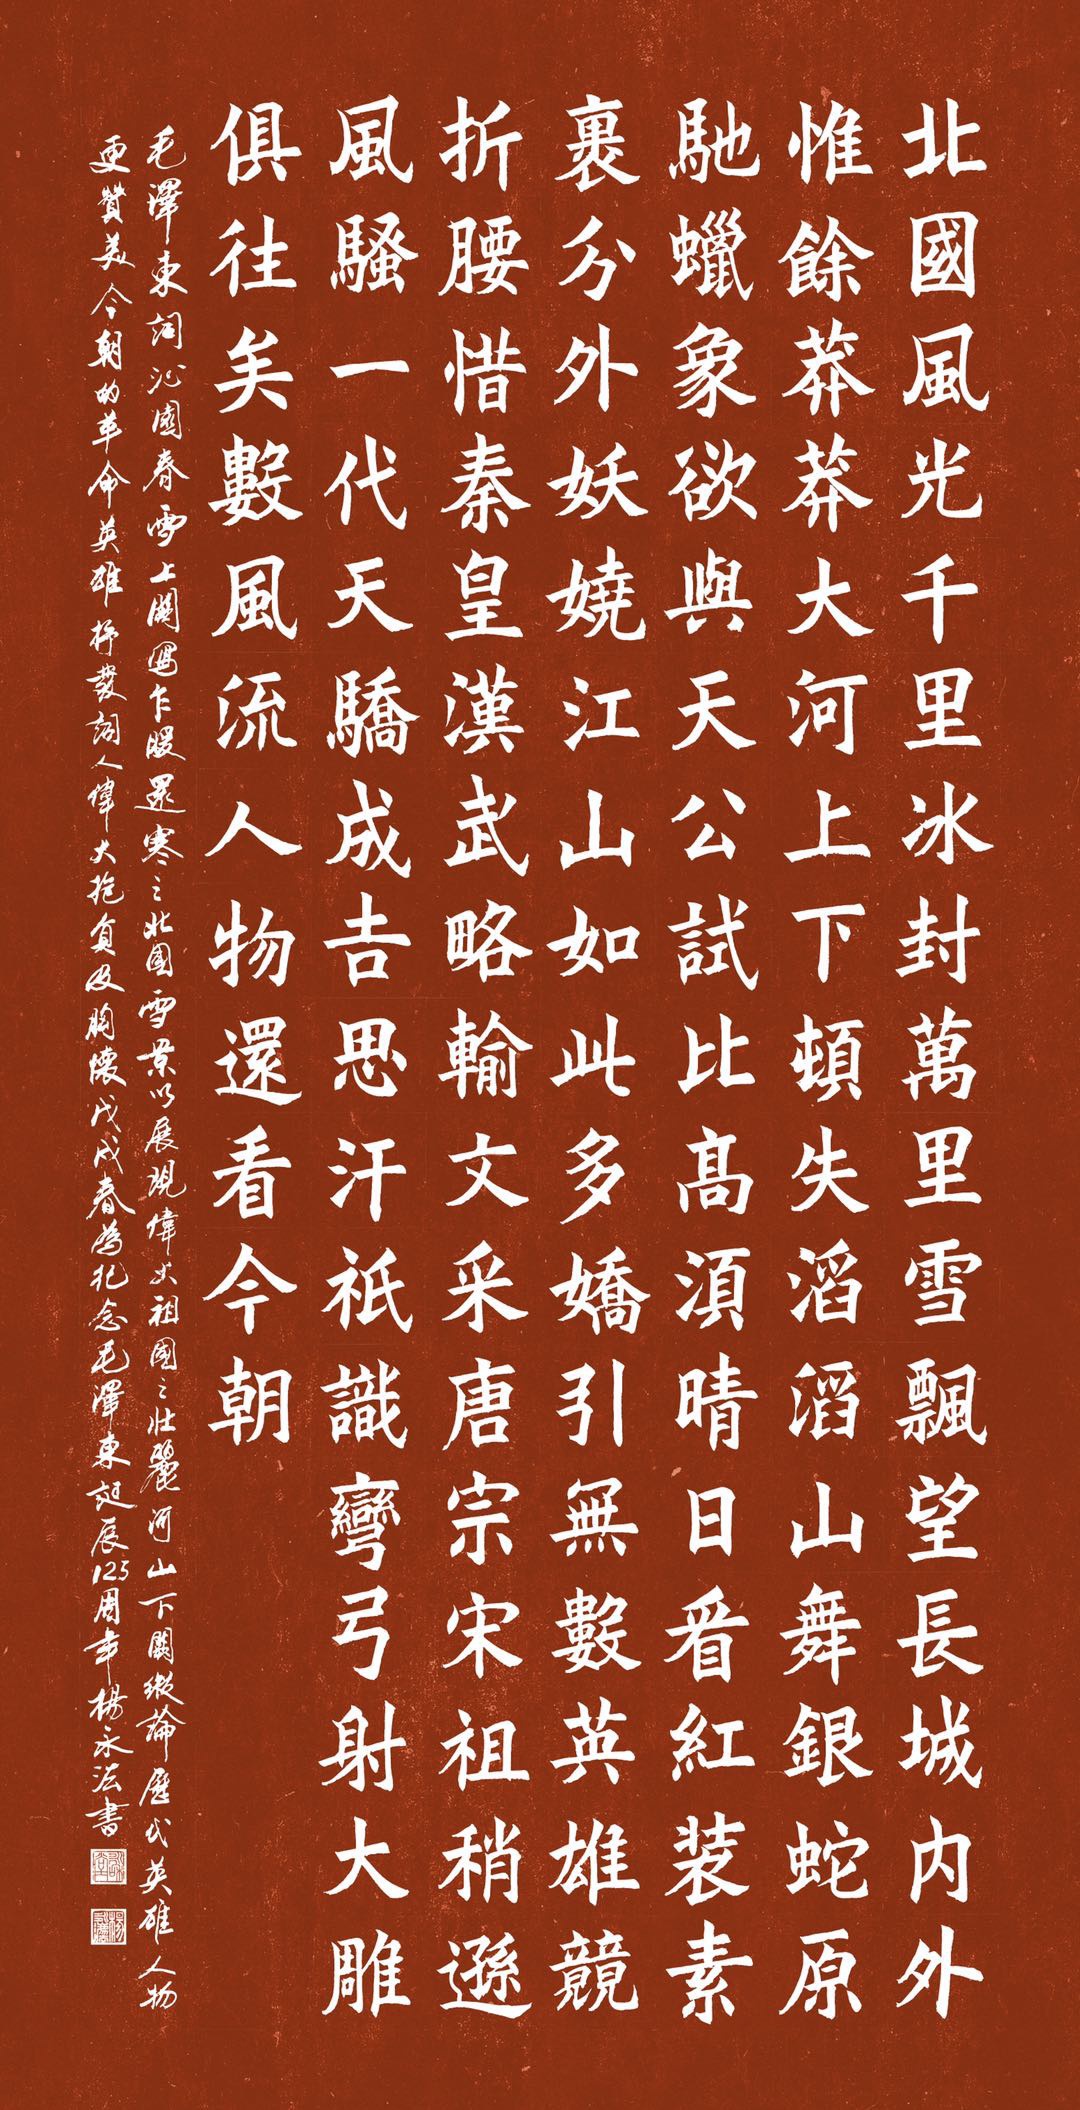 北國風光千里冰封萬里雪飄望長城内外
惟餘莽莽大河上下頓失滔滔山舞銀蛇原
馳蠟象欲與天公試比高須晴日看紅装素
裹分外妖嬈江山如此多嬌引無數英雄競
折腰惜秦皇漢武略輸文采唐宗宋祖稍遜
風騷一代天驕成吉思汗祇識彎弓射大雕
俱往矣數風流人物還看今朝
毛澤東詞沁園春雪上闋寫乍暖還寒之北國雪景以展現偉大祖國之壯麗河山下闋縱論歷代英雄人物
更贊美今朝的革命英雄抒發詞人偉大抱負及胸懷戊戌春為紀念毛澤東誕辰125周年楊永法書